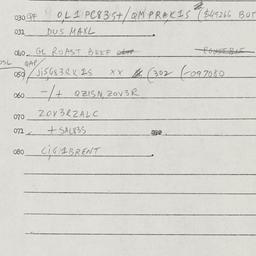 030 OL1PC835+/QMPRAK1S (B49266 BUT
031 DUS MAXL
040 GL ROAST BEEF
050 J1SGR3RK1S XX (302 (-097080
060 -/+ QZ1SN,ZOV3R
070 ZOV3RZALC
071 +SAL835
080 CIG.1BRENT